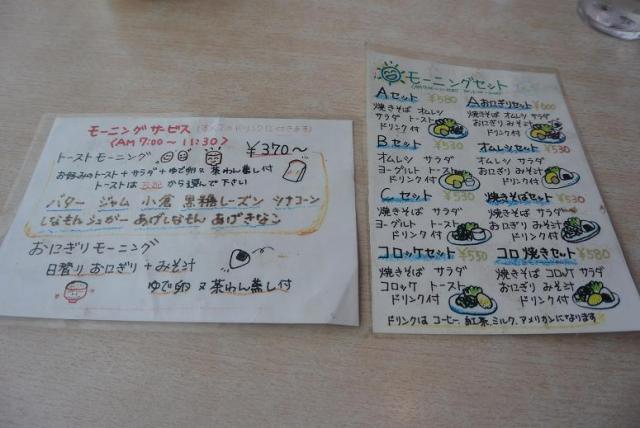 モーニングサービス (すべてのドリンクに付きます)
<AM 7:00～11:30>
¥370～
トーストモーニング
お好みのトースト+サラダ+ゆで卵 又 茶わん蒸し付
トーストは から選んで下さい
バター ジャム 小倉 黒糖レーズン シナコーン
しなもんシュガー あげしなもん あげきなこ
おにぎりモーニング
日替り おにぎり+みそ汁
ゆで卵 又 茶わん蒸し付
モーニングセット
Aセット ¥580
焼きそば オムレツ
サラダ トースト
ドリンク付
Bセット ¥530
オムレツ サラダ
ヨーグルト トースト
ドリンク付
Cセット ¥530
焼きそば サラダ
ヨーグルト トースト
ドリンク付
コロッケセット ¥550
焼きそば サラダ
コロッケ トースト
ドリンク付
Aおにぎりセット ¥600
焼きそば オムレツ サラダ
おにぎり みそ汁
ドリンク付
オムレツセット ¥530
オムレツ サラダ
おにぎり みそ汁
ドリンク付
焼きそばセット ¥530
焼きそば サラダ
おにぎり みそ汁
ドリンク付
コロ焼きセット ¥580
焼きそば コロッケ サラダ
おにぎり みそ汁
ドリンク付
ドリンクは コーヒー、紅茶、ミルク、アメリカンになります